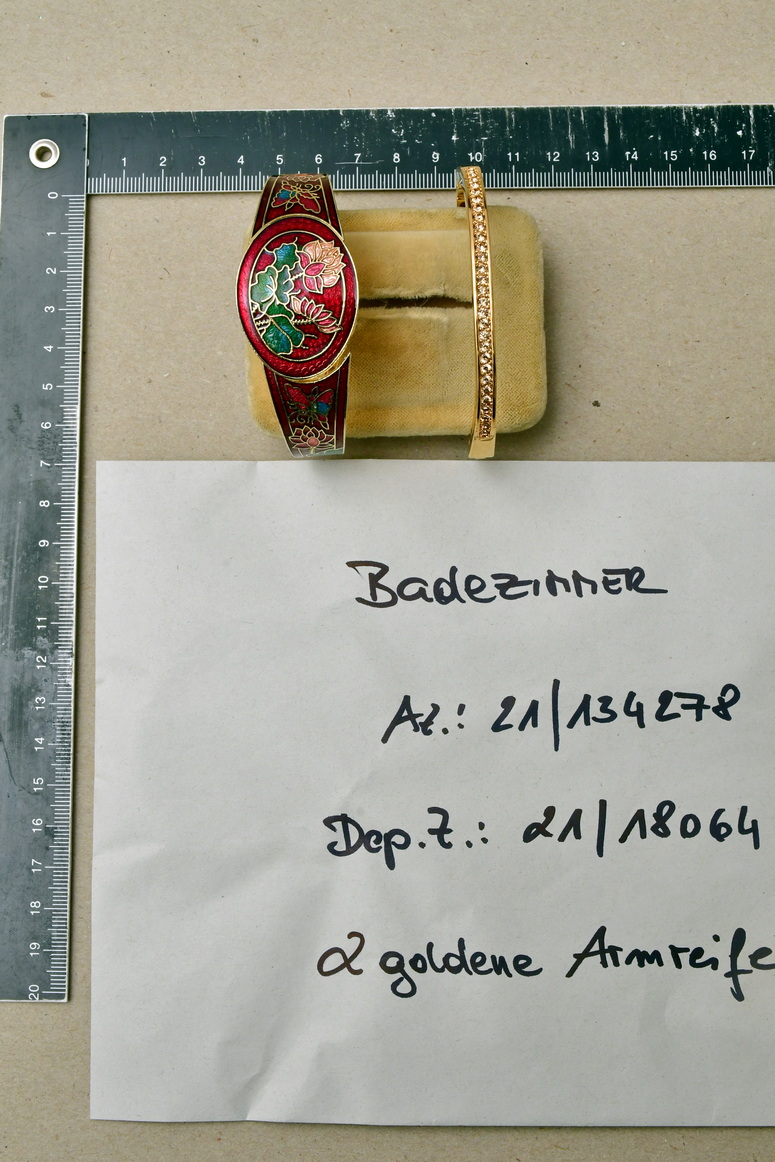 1 2 3 4 5 6 7 8 9 10 11 12 13 14 15 16 17
0
1
2
3
4
5
6
7
8
9
10
11
12
13
14
15
16
17
18
19
20
BadeZIMMER
Az.: 21/134278
Dep.Z.: 21/18064
2 goldene Armreife